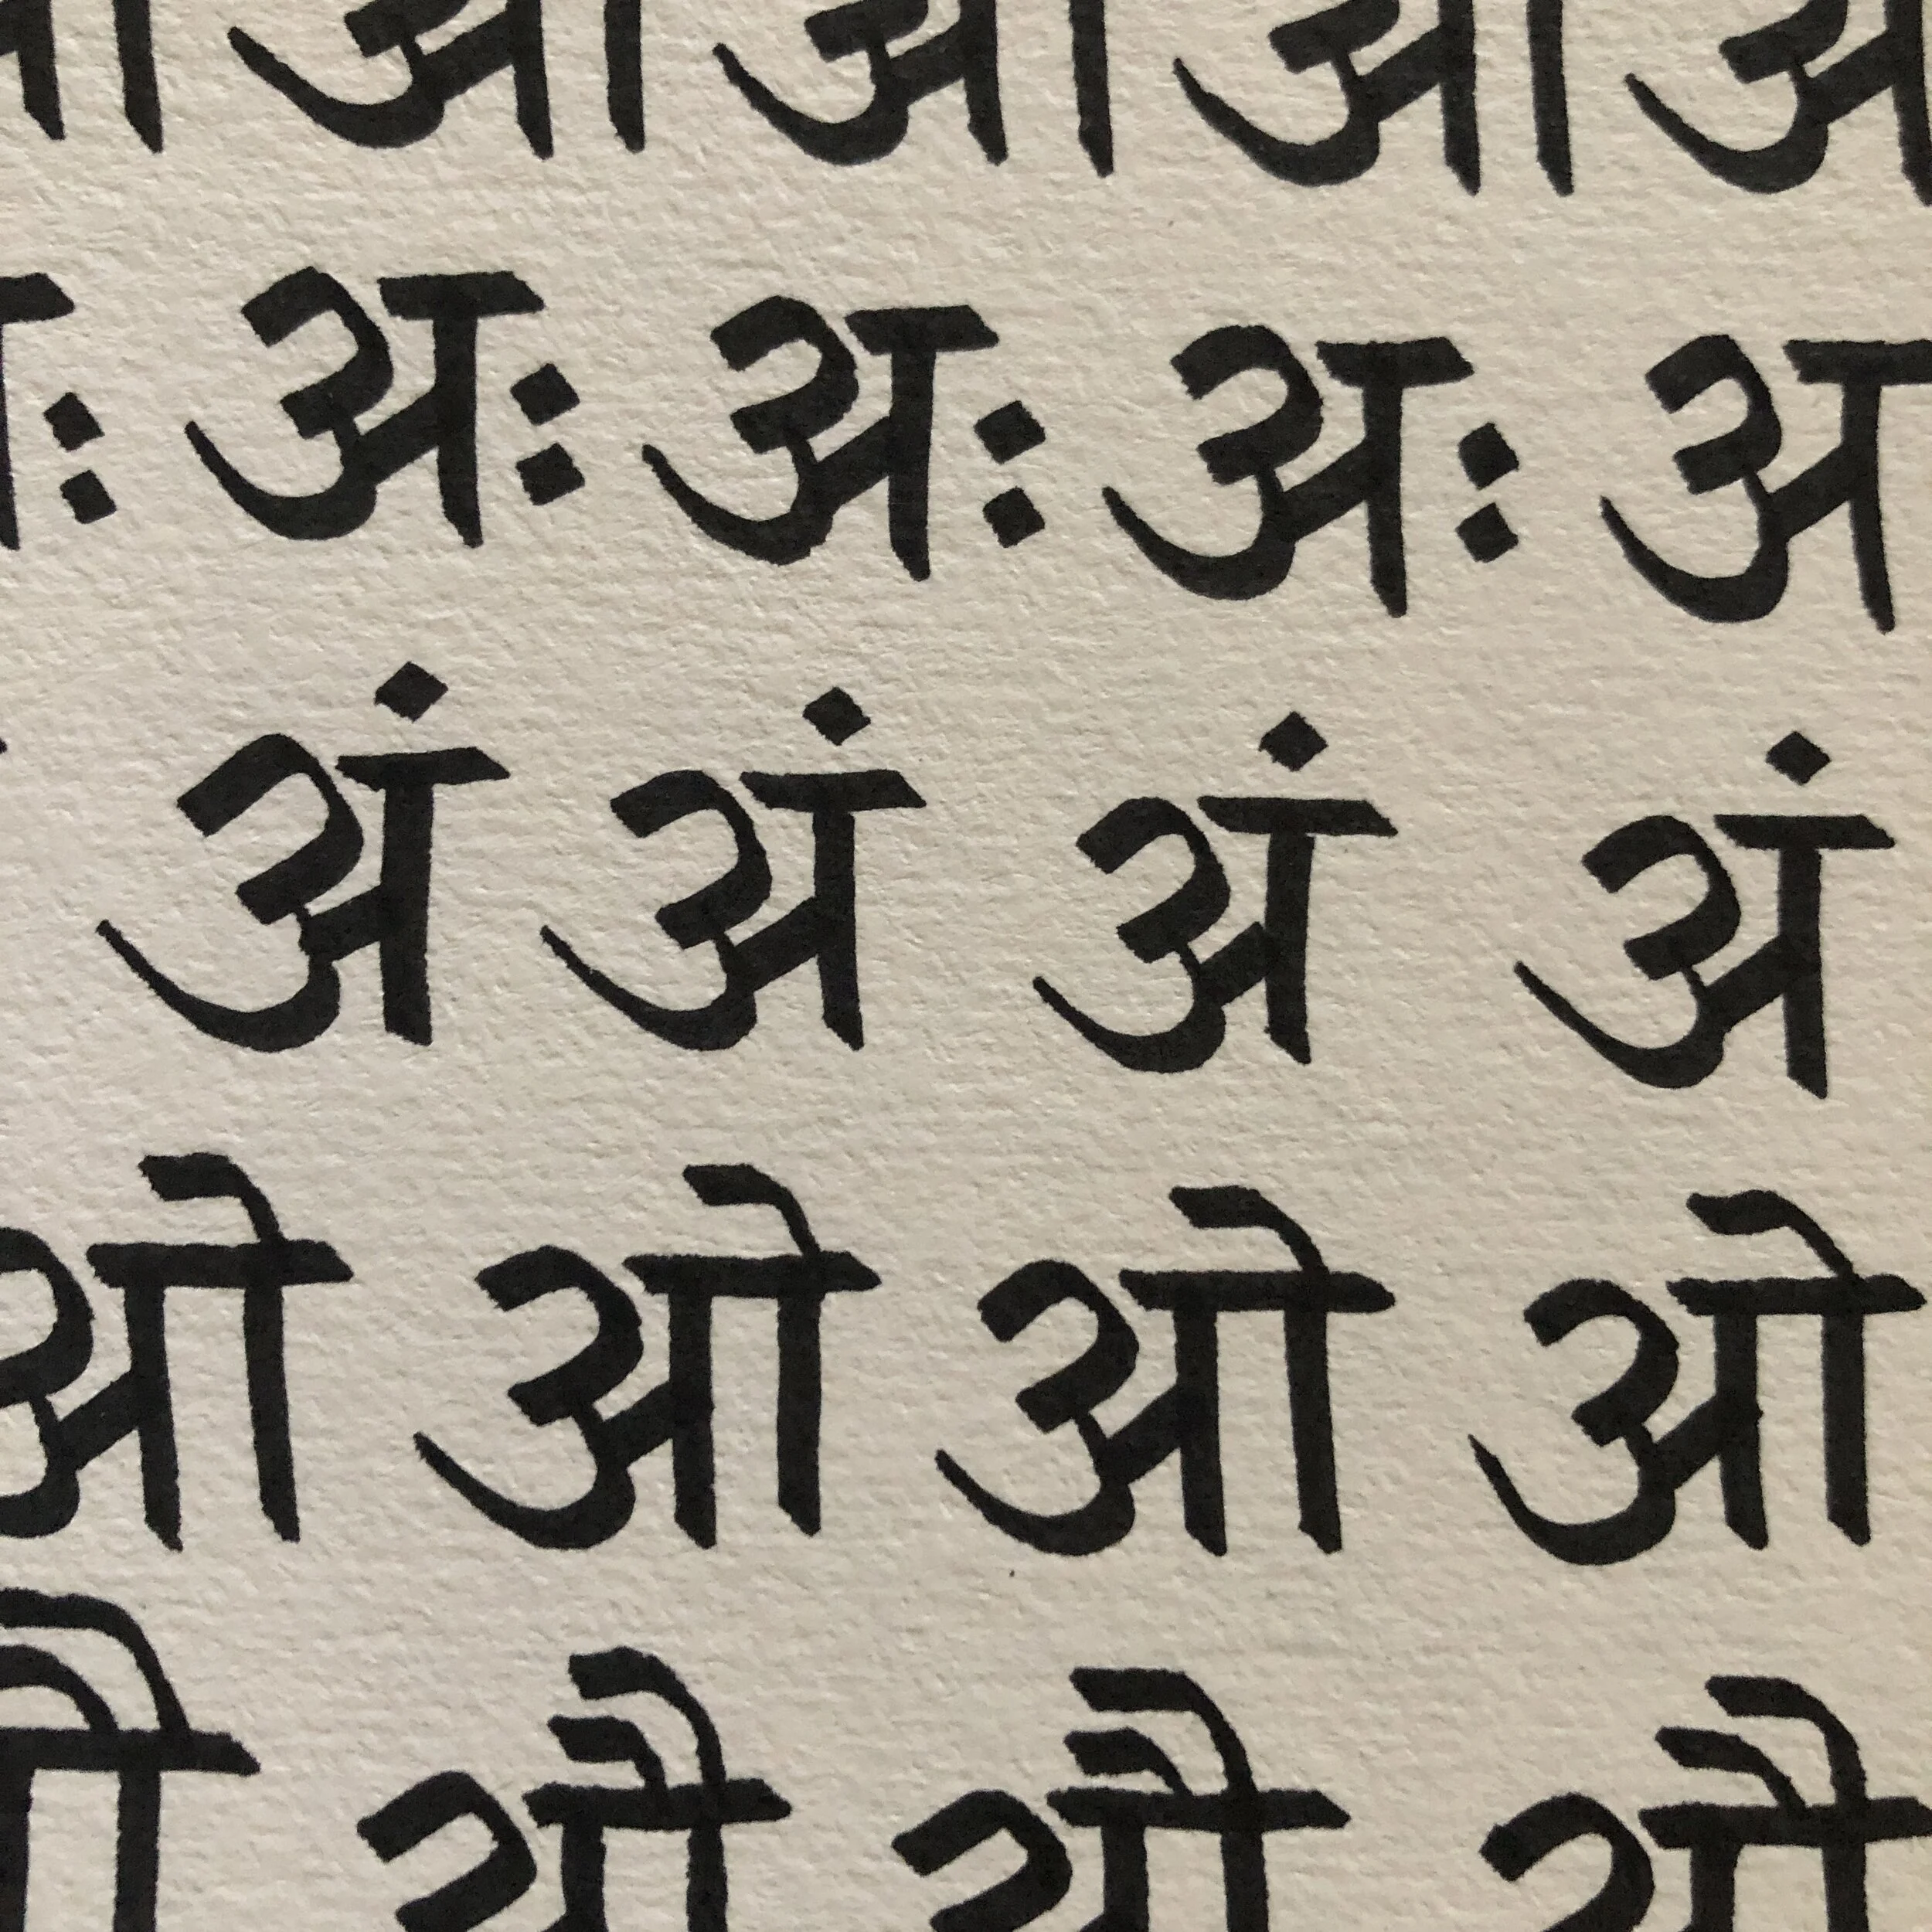 आ आ आ
अः अः अः अ
अं अं अं अं
ओ ओ ओ ओ
औ औ औ